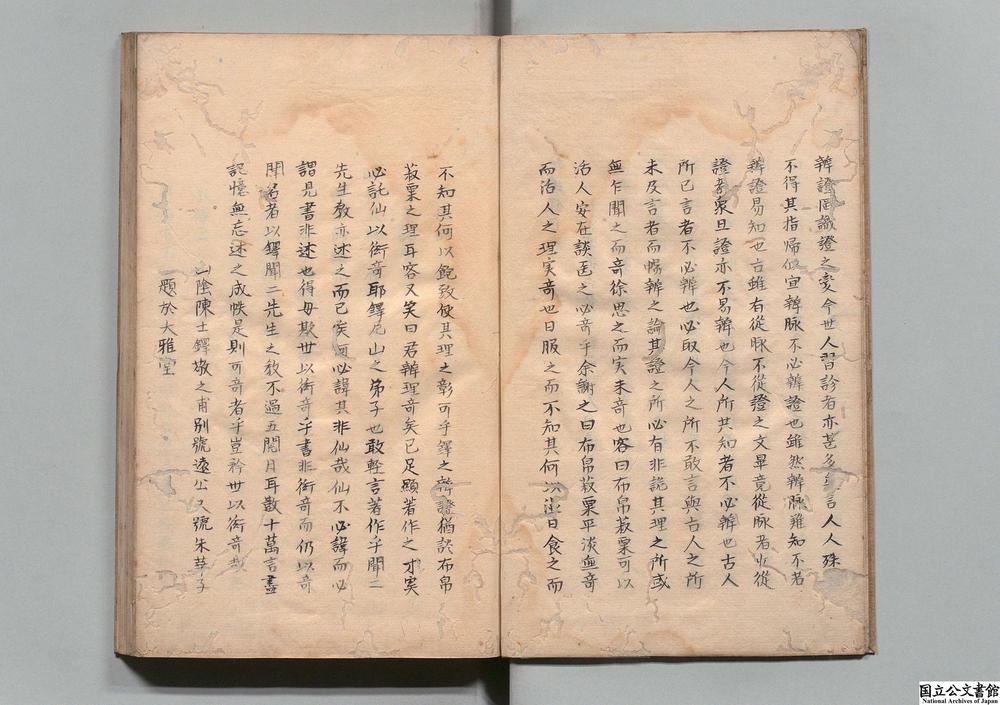 辨證固識證之變今世人習診者亦甚多矣言人人殊
不得其指歸似宜辨脉不必辨證也雖然辨脉難知不若
辨證易知也古雖有從脉不從證之文畢竟從脉者少從
證者衆且證亦不易辨也今人所共知者不必辨也古人
所已言者不必辨也必取今人之所不敢言與古人之所
未及言者而暢辨之論其證之所必有非詭其理之所或
無乍聞之而奇徐思之而実未奇也客曰布帛菽粟可以
活人安在談医之必奇乎余謝之曰布帛菽粟平淡無奇
而活人之理実奇也日服之而不知其何以温日食之而
不知其何以飽致使其理之彰可乎鐸之辨證猶談布帛
菽粟之理耳客又笑曰君辨理奇矣已足顕著作之才実
必託仙以衒奇耶鐸尼山之弟子也敢軽言著作乎聞二
先生教亦述之而已矣何必諱其非仙哉仙不必諱而必
謂見書非述也得毋欺世以衒奇乎書非衒奇而仍以奇
聞名者以鐸聞二先生之教不過五閱月耳数十萬言盡
記憶無忘述之成帙是則可奇者乎豈矜世以衒奇哉
山陰陳士鐸敬之甫別號遠公又號朱華子
題於大雅堂
国立公文書館
National Archives of Japan